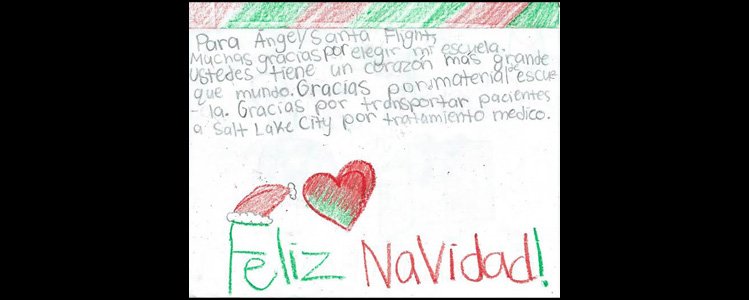 Para Ángel/Santa Flight,
Muchas gracias por elegir mi escuela.
Ustedes tiene un corazón más grande
que mundo. Gracias por materiales escue
-la. Gracias por transportar pacientes
a Salt Lake City por tratamiento medico.
Feliz Navidad!